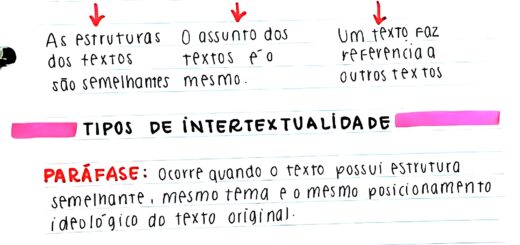 As estruturas dos textos são semelhantes
O assunto dos textos é o mesmo.
Um texto faz referencia a outros textos
TIPOS DE INTERTEXTUALIDADE
PARÁFASE: Ocorre quando o texto possui estrutura
semelhante, mesmo tema e o mesmo posicionamento
ideológico do texto original.